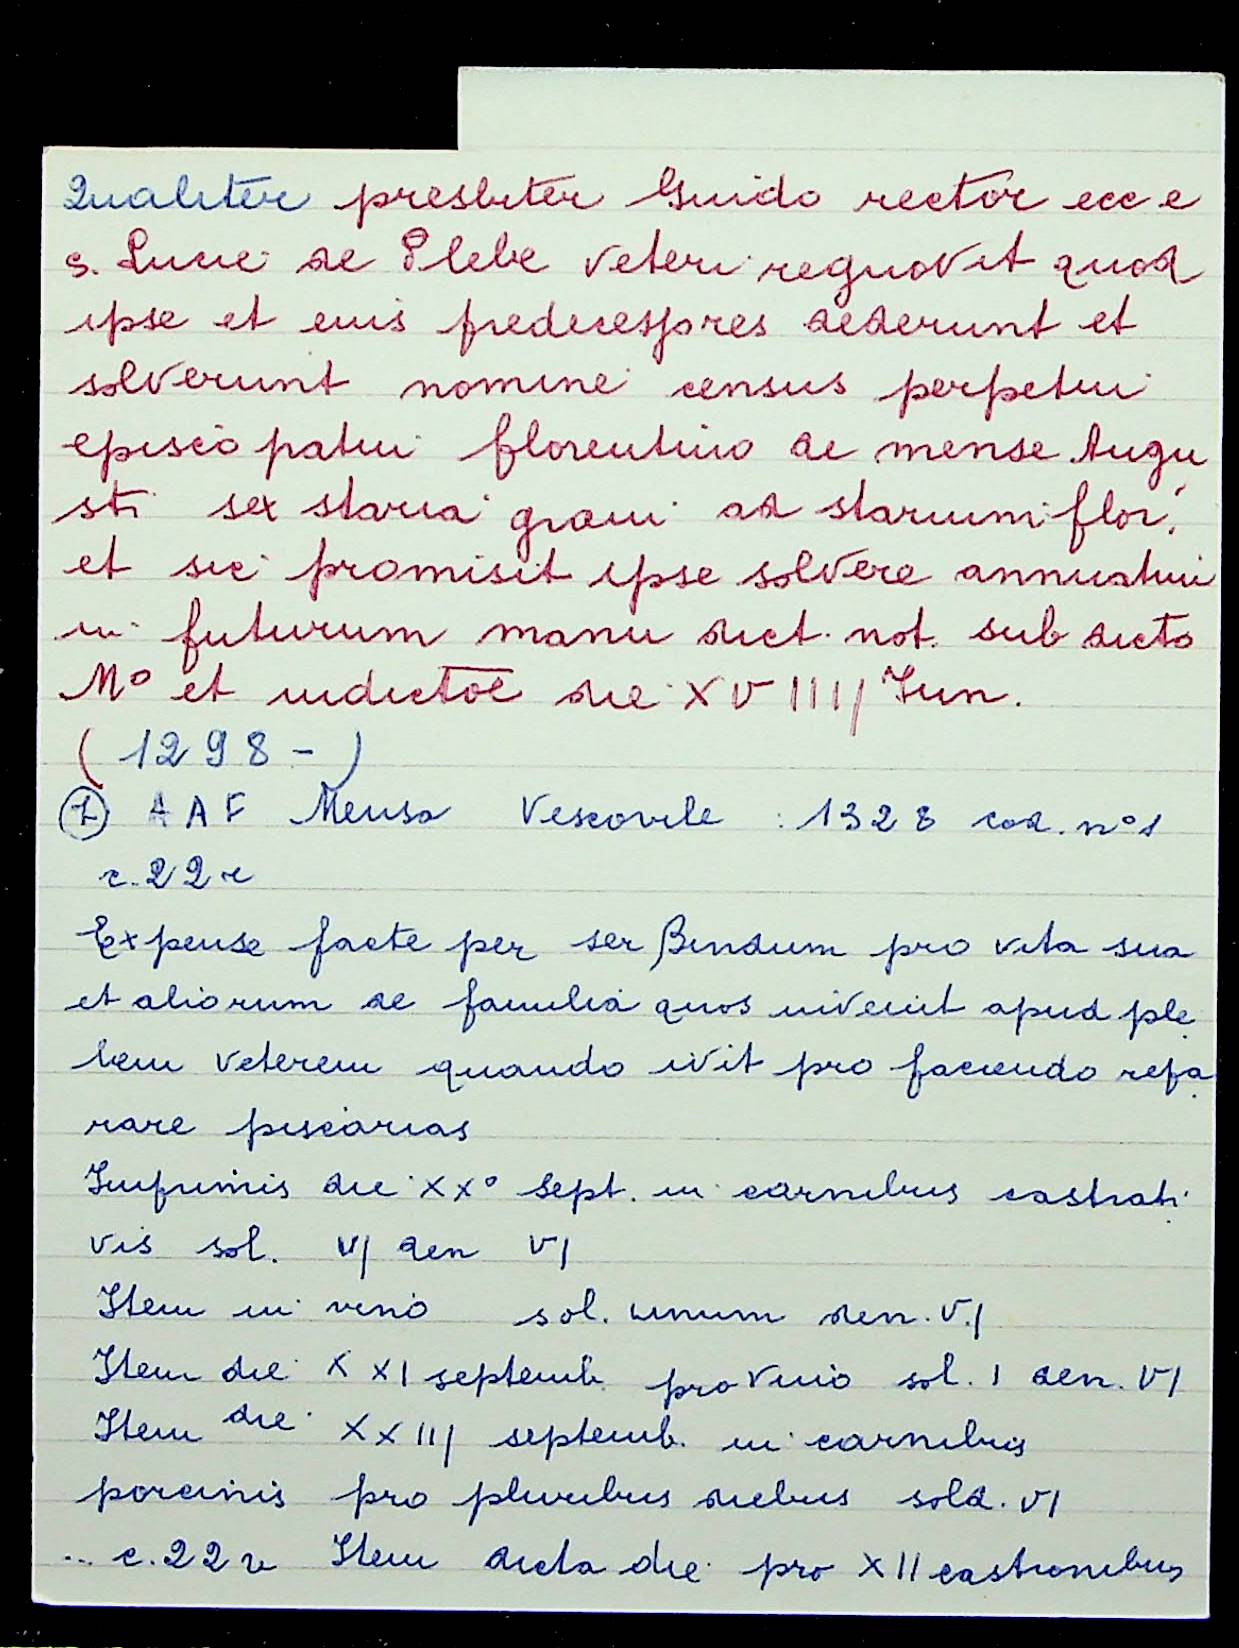 Qualiter presbiter Guido rector ecc e
s. Lucie de Plebe veteri regnovit quod
ipse et eius predecessores dederunt et
solverunt nomine census perpetui
episcopatui florentino de mense Augu
sti sex staria grani ad starium flor.
et sic promisit ipse solvere annuatim
in futurum manu dict. not. sub dicto
M° et indictōe die XVIIII Jun.
(1298-)
1 AAF Mensa Vescovile : 1328 cod. n° 1
c. 22 r
Expense facte per ser Bindum pro vita sua
et aliorum de familia quos invenit apud ple
bem veterem quando ivit pro faciendo repa
rare piscarias
Imprimis die XX° sept. in carnibus castrati
vis sol. VI den VI
Item in vino sol. unum den. VI
Item die XXI septemb. pro vino sol. I den. VI
Item die XXIII septemb. in carnibus
porcinis pro pluribus diebus sold. VI
... c. 22 v Item dicta die pro XII castronibus